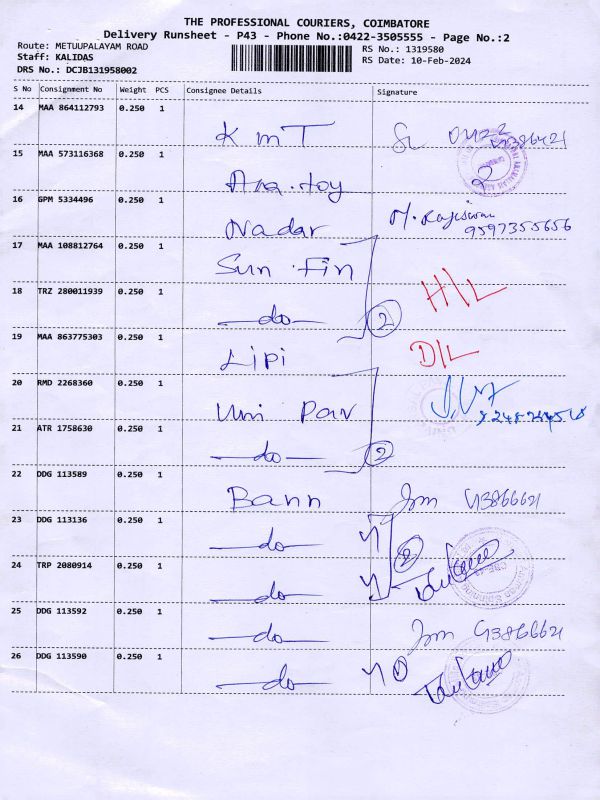 THE PROFESSIONAL COURIERS, COIMBATORE
Delivery Runsheet - P43 - Phone No.:0422-3505555 - Page No.:2
Route: METUUPALAYAM ROAD
RS No.: 1319580
Staff: KALIDAS
RS Date: 10-Feb-2024
DRS No.: DCJB131958002
S No Consignment No Weight PCS Consignee Details Signature
14 MAA 864112793 0.250 1 KMT
15 MAA 573116368 0.250 1
16 GPM 5334496 0.250 1 Nadar M. Rajiswari 9597355656
17 MAA 108812764 0.250 1 Sun Fin
18 TRZ 280011939 0.250 1 —do— 2 H/L
19 MAA 863775303 0.250 1 Lipi D/L
20 RMD 2268360 0.250 1 Uni Par
21 ATR 1758630 0.250 1 —do— 2
22 DDG 113589 0.250 1 Bann
23 DDG 113136 0.250 1 —do— 2
24 TRP 2080914 0.250 1 —do—
25 DDG 113592 0.250 1 —do—
26 DDG 113590 0.250 1 —do—